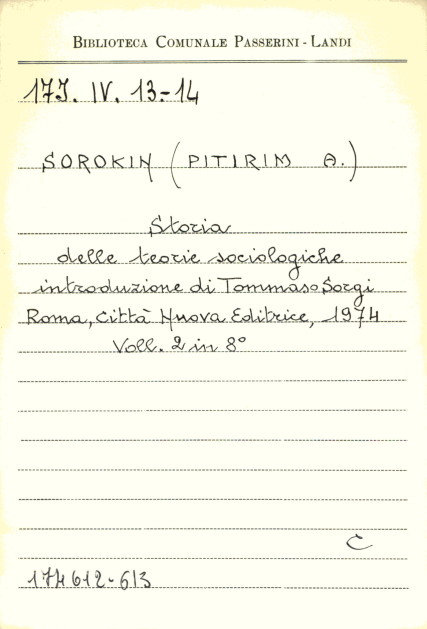 BIBLIOTECA COMUNALE PASSERINI - LANDI
17J. IV. 13-14
SOROKIN (PITIRIM A.)
Storia
delle teorie sociologiche
introduzione di Tommaso Sorgi
Roma, Città Nuova Editrice, 1974
Voll. 2 in 8°
C
174612-613